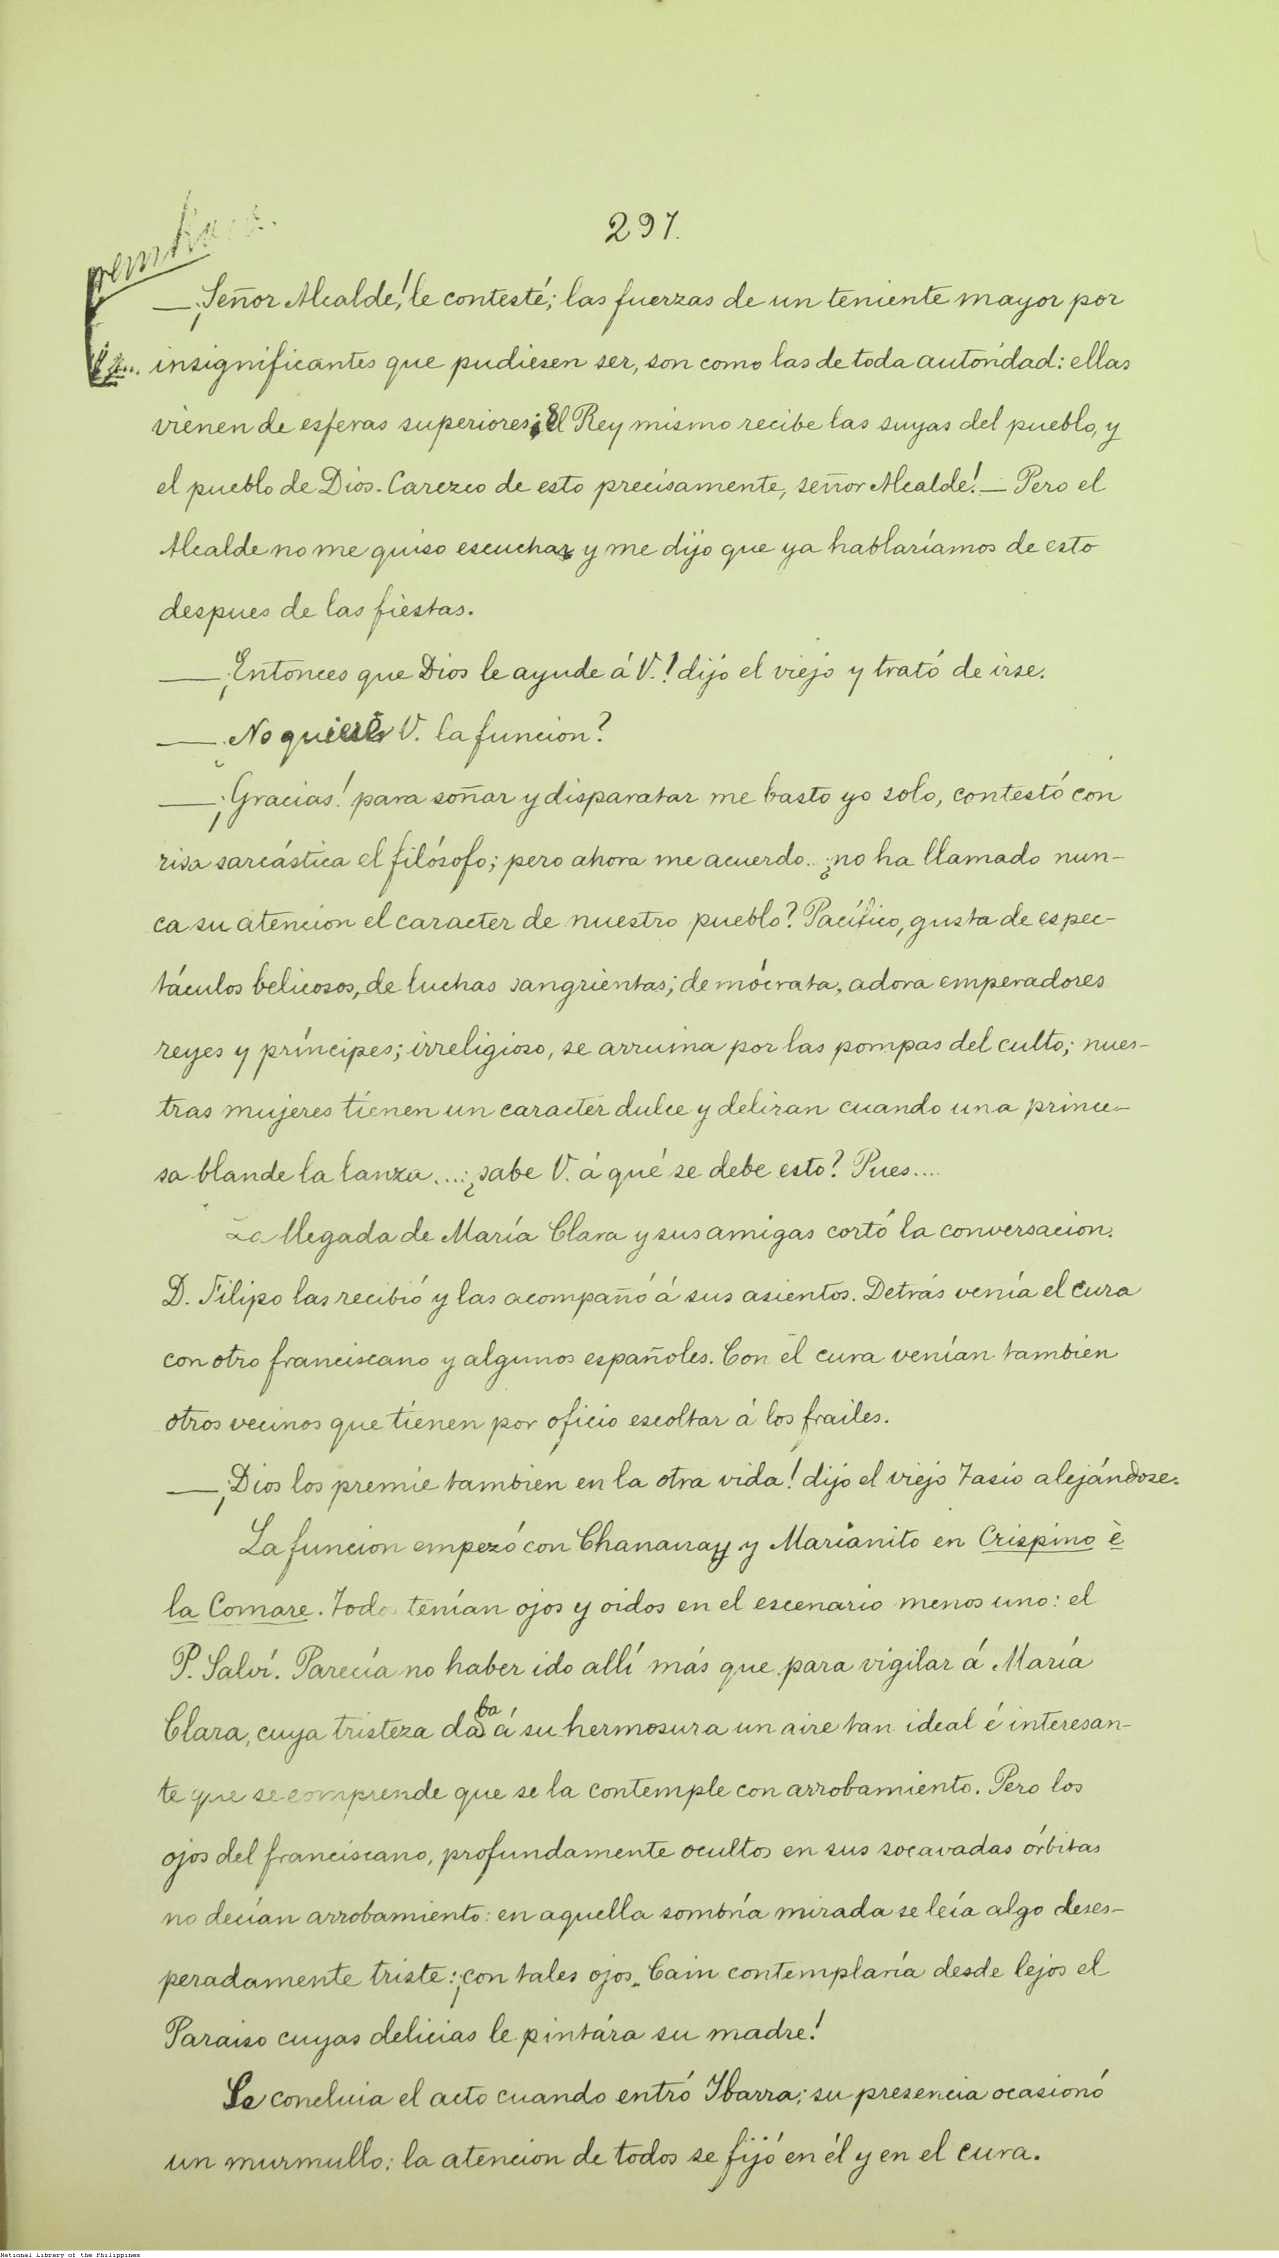 297.
—¡Señor Alcalde! le contesté; las fuerzas de un teniente mayor por
insignificantes que pudiesen ser, son como las de toda autoridad: ellas
vienen de esferas superiores; El Rey mismo recibe las suyas del pueblo, y
el pueblo de Dios. Carezco de esto precisamente, señor Alcalde! — Pero el
Alcalde no me quiso escuchar y me dijo que ya hablaríamos de esto
despues de las fiestas.
—¡Entonces que Dios le ayude á V.! dijo el viejo y trató de irse.
—¿No quiere V. la funcion?
—¡Gracias! para soñar y disparatar me basto yo solo, contestó con
risa sarcástica el filósofo; pero ahora me acuerdo.. ¿no ha llamado nun-
ca su atencion el caracter de nuestro pueblo? Pacífico, gusta de espec-
táculos belicosos, de luchas sangrientas; demócrata, adora emperadores
reyes y príncipes; irreligioso, se arruina por las pompas del culto; nues-
tras mujeres tienen un caracter dulce y deliran cuando una prince-
sa blande la lanza....¿sabe V. á qué se debe esto? Pues....
La llegada de María Clara y sus amigas cortó la conversacion.
D. Filipo las recibió y las acompañó á sus asientos. Detrás venía el cura
con otro franciscano y algunos españoles. Con el cura venían tambien
otros vecinos que tienen por oficio escoltar á los frailes.
—¡Dios los premie tambien en la otra vida! dijo el viejo Tasio alejándose.
La funcion empezó con Chananay y Marianito en Crispino è
la Comare. Todo tenían ojos y oidos en el escenario menos uno: el
P. Salví. Parecía no haber ido allí más que para vigilar á María
Clara, cuya tristeza daba á su hermosura un aire tan ideal é interesan-
te que se comprende que se la contemple con arrobamiento. Pero los
ojos del franciscano, profundamente ocultos en sus socavadas órbitas
no decían arrobamiento: en aquella sombría mirada se leía algo deses-
peradamente triste: ¡con tales ojos Cain contemplaría desde lejos el
Paraiso cuyas delicias le pintára su madre!
Se concluia el acto cuando entró Ibarra; su presencia ocasionó
un murmullo: la atencion de todos se fijó en él y en el cura.
National Library of the Philippines